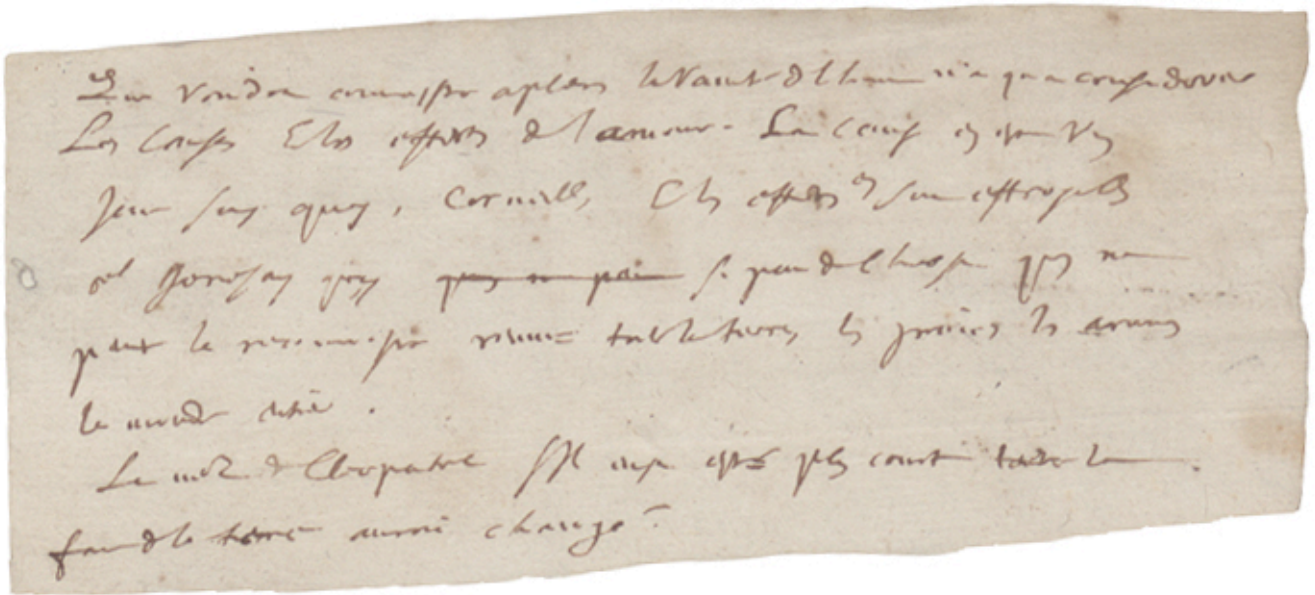 Qui voudra connoistre a plein la vanité de lhomme n'a qu'a considerer
Les causes & les effects de l'amour. La cause en est un
Je ne sçay quoy, Corneille, & les effects en sont effroyables
ce Je ne sçay quoy si peu de chose qu'on ne
peut le reconnoistre remue toute la terre, les princes, les armées
le monde entier.
Le nez de Cleopatre s'il eust esté plus court toute la
face de la terre auroit changé